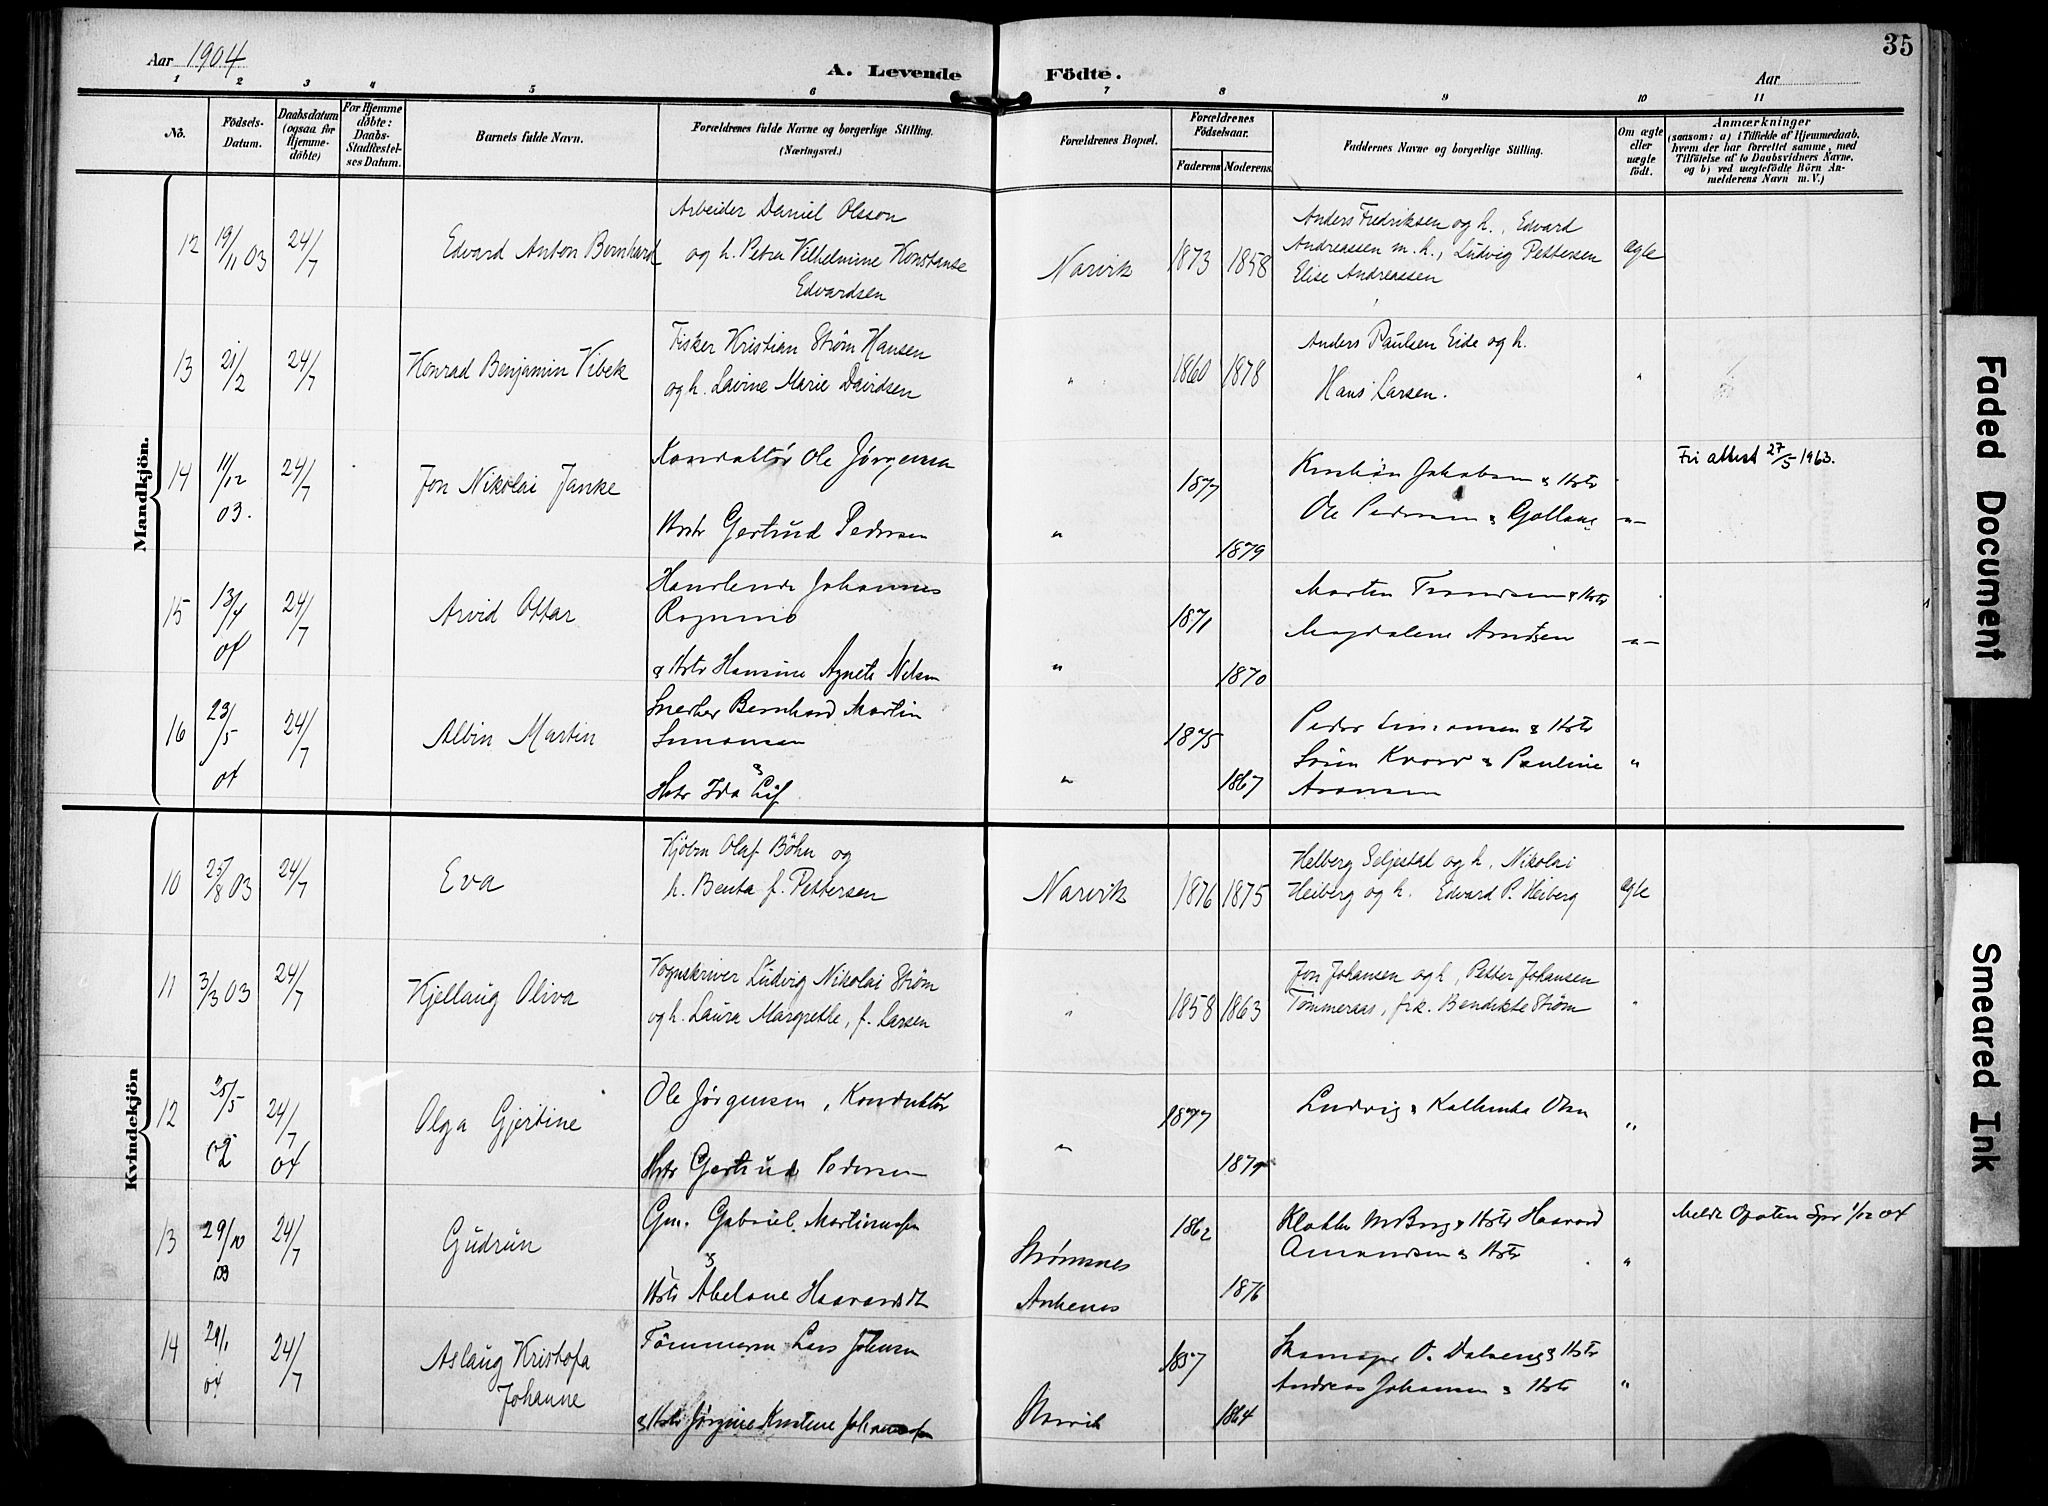 Aar 1904
A. Levende Födte.
Aar
35
1 2 3 4 5 6 7 8 9 10 11
No.
Födsels-Datum.
Daabsdatum (ogsaa for Hjemme-döbte)
For Hjemme döbte: Daabs-Stadfæstel-ses Datum.
Barnets fulde Navn.
Forældrenes fulde Navne og borgerlige Stilling.
(Næringsvei.)
Forældrenes Bopæl.
Forældrenes Födselsaar.
Faderens Moderens
Faddernes Navne og borgerlige Stilling.
Om ægte eller uægte födt.
Anmærkninger
(saasom: a) i Tilfælde af Hjemmedaab, hvem der har forrettet samme, med Tilföielse af to Daabsvidners Navne. og b) ved uægtefödte Börn An-melderens Navn m. V.)
Mandkjön.
12 19/11 03 24/7 Edvard Anton Bernhard
Arbeider Daniel Olsson
og h. Petra Vilhelmine Konstanse
Edvardsen
Narvik 1873 1858
Anders Fredriksen og h., Edvard
Andreassen m. h., Ludvig Pettersen
Elise Andreassen
ægte
13 21/2 24/7 Konrad Benjamin Vibek
Fisker Kristian Strøm Hansen
og h. Lavine Marie Davidsen
" 1860 1878
Anders Paulsen Eide og h.
Hans Larsen.
"
14 11/12 03. 24/7 Jon Nikolai Janke
Konduktör Ole Jørgensen
Hstr Gertrud Pedersen
" 1877 1879
Jakobsen & Hstr
Ole Pedersen &
-"-
Fri attest 27/5 1963.
15 13/4 04 24/7 Arvid Ottar
Handlende Johannes
& Hstr Hansine Agnete Nilsen
" 1871 1870
Morten & Hstr
Magdalene Arntsen
-"-
16 23/5 04 24/7 Albin Martin
Bernhard Martin
Simonsen
&
Hstr Ida
" 1875 1867
Peder Simonsen & Hstr
Sören & Pauline
Aronsen
"
Kvindekjön
10 25/8 03 24/7 Eva
Kjøbm Olaf Böhn og
h. Benta f. Pettersen
Narvik 1876 1875
Helberg Seljestad og h. Nikolai
Heiberg og h. Edward P. Heiberg
ægte
11 3/3 03 24/7 Kjellaug Oliva
Vognskriver Ludvig Nikolai Strøm
og h. Laura Margrethe, f. Larsen
" 1858 1863
Jon Johansen og h, Petter Johansen
Tømmeraas, frk. Bendikte Strøm
"
12 25/5 02 24/7 04 Olga Gjertine
Ole Jørgensen, Konduktör
Hstr Gertrud Pedersen
" 1877 1879
Ludvig & Olsen
"
13 29/10 03 24/7 Gudrun
Gm. Gabriel Martinussen
&
Hstr Abelone
Strømsnes
Ankenes
1862 1876
Klokker & Hstr Haavard
Amundsen & Hstr
"
Meldt 1/12 04
14 29/1 04 24/7 Aslaug Kristofa
Johanne
Tömmerm Lars Johnsen
& Hstr Jørgine
Narvik 1857 1864
O. & Hstr
Andreas Johansen & Hstr
"
Faded Document
Smeared Ink